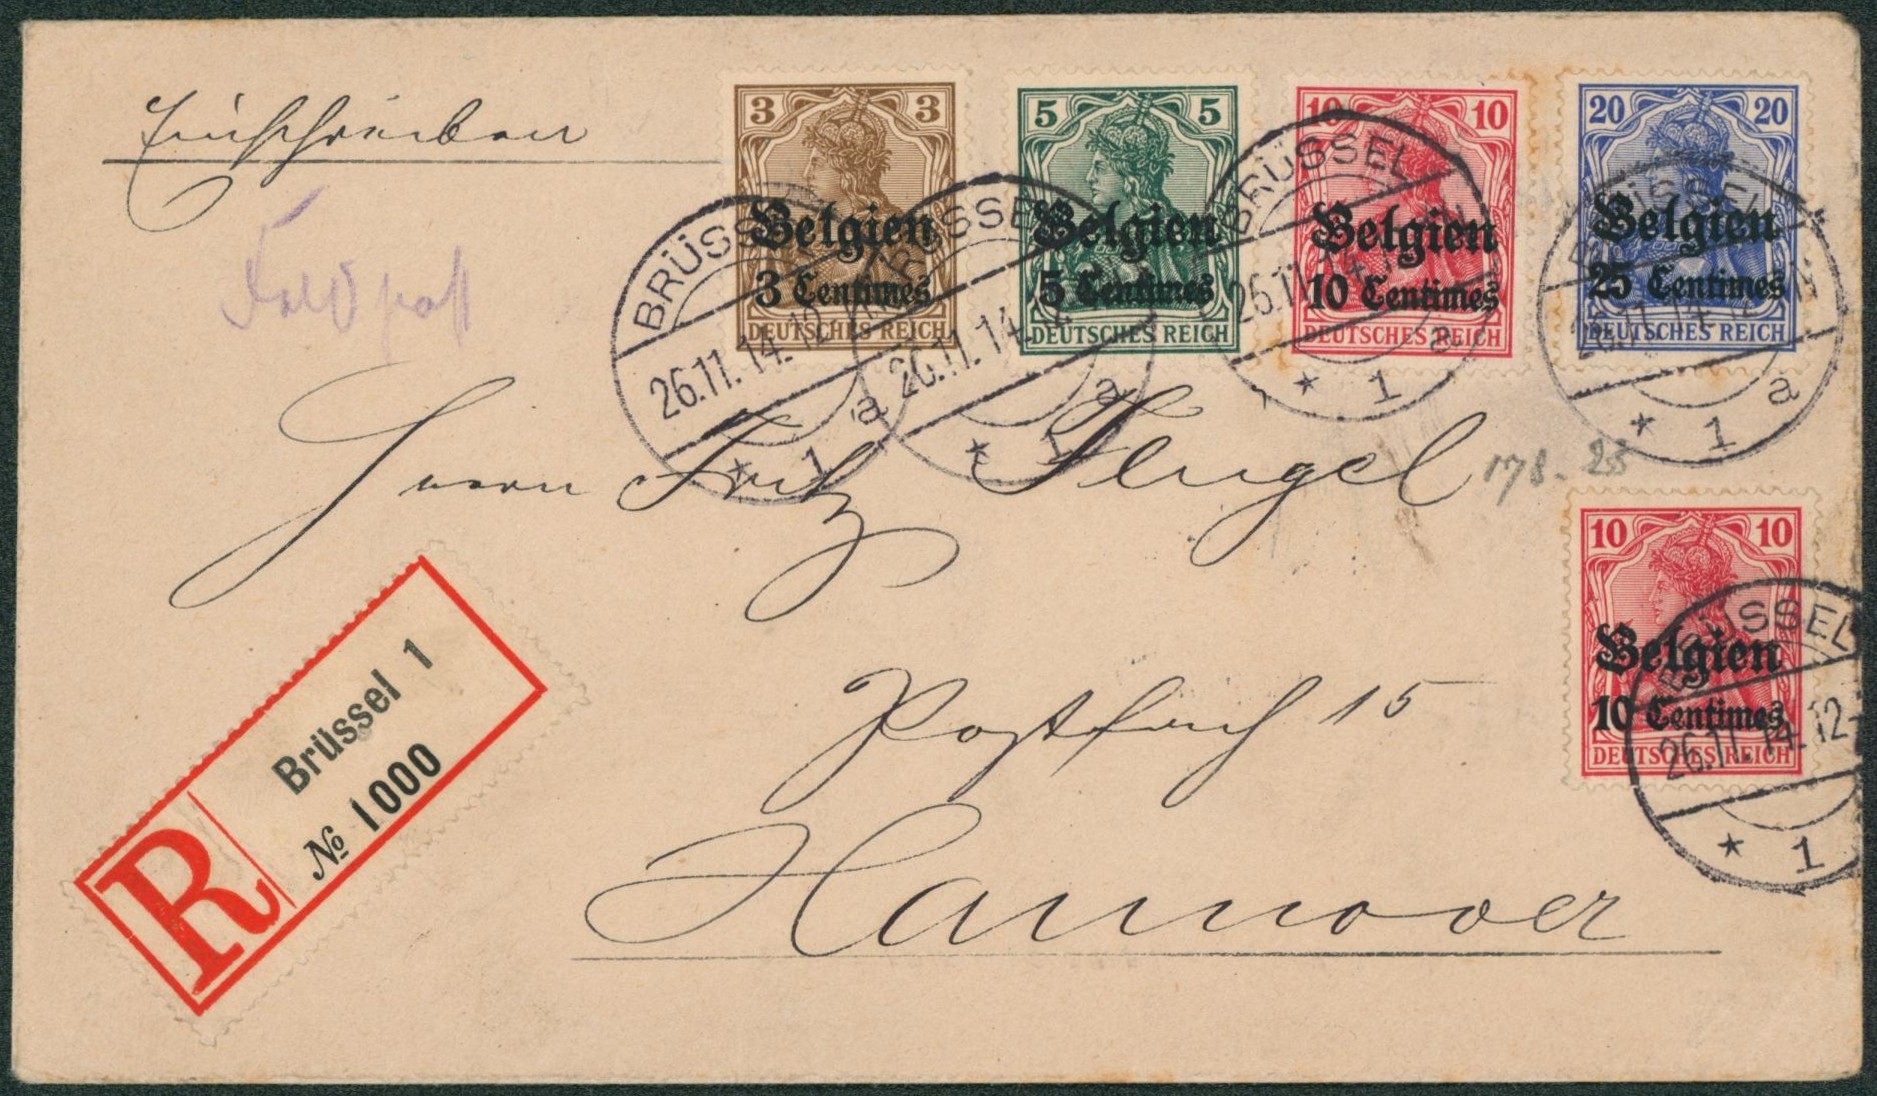 Einschreiben
Feldpost
3 3
Belgien
3 Centimes
DEUTSCHES REICH
5 5
Belgien
5 Centimes
DEUTSCHES REICH
10 10
Belgien
10 Centimes
DEUTSCHES REICH
20 20
Belgien
25 Centimes
DEUTSCHES REICH
BRÜSSEL
26.11.14.12
* 1 a
BRÜSSEL
26.11.14.
* 1 a
BRÜSSEL
26.11.14
* 1 a
BRÜSSEL
26.11.14.12-1N
* 1 a
Herrn Fritz Flügel
178. 25
10 10
Belgien
10 Centimes
DEUTSCHES REICH
BRÜSSEL
26.11.14.12-
* 1
Postfach 15
Hannover
R
Brüssel 1
№ 1000